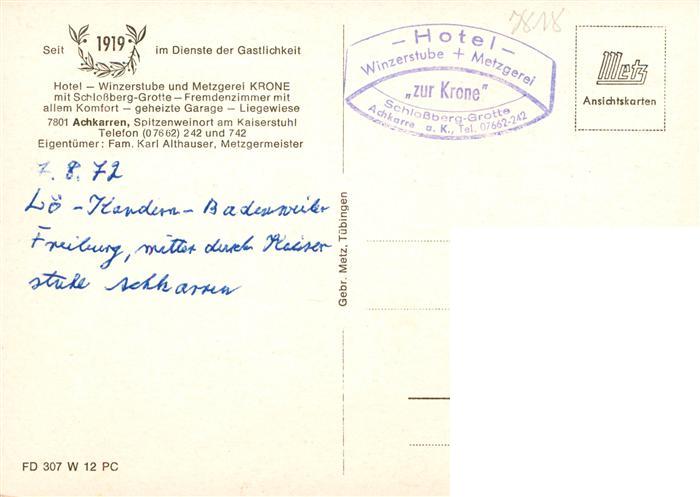 Seit 1919 im Dienste der Gastlichkeit
Hotel – Winzerstube und Metzgerei KRONE
mit Schloßberg-Grotte – Fremdenzimmer mit
allem Komfort – geheizte Garage – Liegewiese
7801 Achkarren, Spitzenweinort am Kaiserstuhl
Telefon (07662) 242 und 742
Eigentümer: Fam. Karl Althauser, Metzgermeister
7.8.72
Lö - Kandern - Badenweiler
Freiburg, mitten durch Kaiser
stuhl Achkarren
FD 307 W 12 PC
Gebr. Metz, Tübingen
7818
– Hotel –
Winzerstube + Metzgerei
„zur Krone"
Schloßberg-Grotte
Achkarre a. K., Tel. 07662-242
Metz
Ansichtskarten